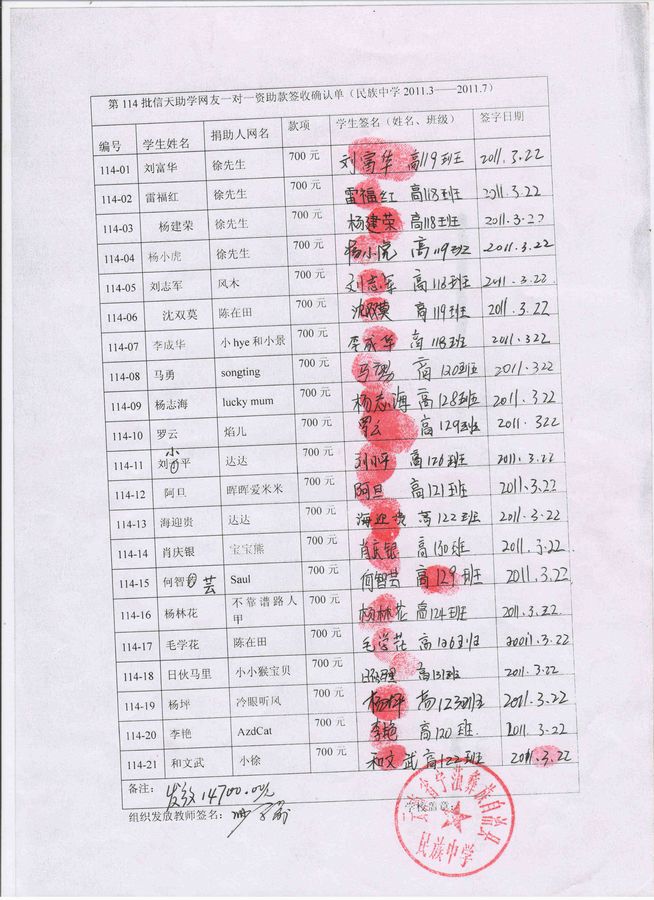 第 114 批信天助学网友一对一资助款签收确认单（民族中学 2011.3——2011.7）
编号 学生姓名 捐助人网名 款项 学生签名（姓名、班级） 签字日期
114-01 刘富华 徐先生 700 元 刘富华 高119班 2011.3.22
114-02 雷福红 徐先生 700 元 雷福红 高118班 2011.3.22
114-03 杨建荣 徐先生 700 元 杨建荣 高118班 2011.3.22
114-04 杨小虎 徐先生 700 元 杨小虎 高119班 2011.3.22
114-05 刘志军 风木 700 元 刘志军 高118班 2011.3.22
114-06 沈双莫 陈在田 700 元 沈双莫 高119班 2011.3.22
114-07 李成华 小 hye 和小景 700 元 李成华 高118班 2011.3.22
114-08 马勇 songting 700 元 马勇 高120班 2011.3.22
114-09 杨志海 lucky mum 700 元 杨志海 高128班 2011.3.22
114-10 罗云 焰儿 700 元 罗云 高129班 2011.322
114-11 刘小平 达达 700 元 刘小平 高126班 2011.3.22
114-12 阿旦 晖晖爱米米 700 元 阿旦 高121班 2011.3.22
114-13 海迎贵 达达 700 元 海迎贵 高122班 2011.3.22
114-14 肖庆银 宝宝熊 700 元 肖庆银 高130班 2011.3.22
114-15 何智芸 Saul 700 元 何智芸 高129班 2011.3.22
114-16 杨林花 不靠谱路人甲 700 元 杨林花 高124班 2011.3.22.
114-17 毛学花 陈在田 700 元 毛学花 高126班 20011.3.22
114-18 日伙马里 小小猴宝贝 700 元 高131班 2011.3.22
114-19 杨坪 冷眼听风 700 元 杨坪 高123班 2011.3.22
114-20 李艳 AzdCat 700 元 李艳 高120班. 2011.3.22
114-21 和文武 小徐 700 元 和文武 高122班 2011.3.22
备注： 发放14700.00元
组织发放教师签名： 学校盖章：
宁蒗彝族自治县
民族中学